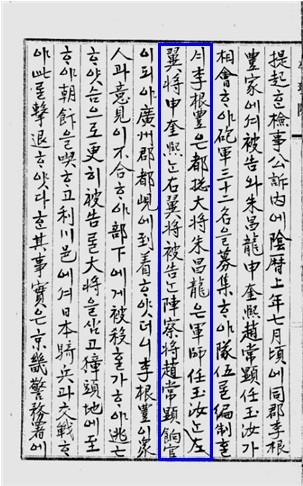 提起ᄒᆞᆫ檢事公訴內에陰曆上年七月頃에同郡李根
豊家에셔被告와朱昌龍申奎熙趙常顯任玉汝가
相會ᄒᆞ야砲軍三十二名을募集ᄒᆞ야隊伍를編制ᄒᆞᆯ
시李根豊은都總大將朱昌龍은軍師任玉汝ᄂᆞᆫ左
翼將申奎熙ᄂᆞᆫ右翼將被告ᄂᆞᆫ陣察將趙常顯餉官
이되야廣州郡都峴에到着ᄒᆞ얏더니李根豊의衆
人과意見이不合ᄒᆞ야部下에게被殺ᄒᆞᆯ가ᄒᆞ야逃亡
ᄒᆞ얏슴으로更히被告로大將을삼고獐頭地에至
ᄒᆞ야朝飰을喫ᄒᆞ고利川邑에셔日本騎兵과交戰ᄒᆞ
야此를擊退ᄒᆞ얏다ᄒᆞᆫ其事實은京畿警務署에